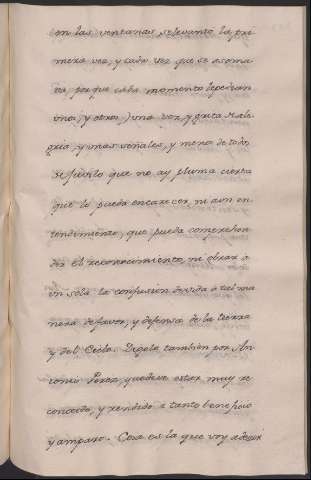 en las ventanas, se levanto la pri
mera vez, y cada vez que se asoma
va, porque cada momento le pedian
unos, y otros) una voz, y grita de ale
gria, y unas señales, y menos de todo,
que lo pueda encarecer, ni aun en
tendimiento, que pueda comprehen
der el reconocimiento, ni obrar a
un sola la confusion devida a tal ma
nera de favor, y defensa de la tierra
y del Cielo. Digolo tambien por An
tonio Perez, que deve estar muy re
conocido, y rendido a tanto beneficio
y amparo. Cosa es la que voy a dezir